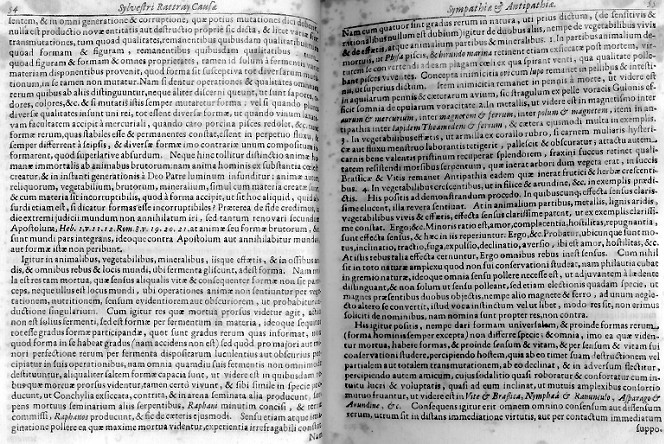 54 Sylvestri Rattray Causæ
sentem, & in omni generatione & corruptione, quæ potius mutationes dici debent,
nulla est productio novæ entitatis aut destructio
transmutationes, tum quoad qualitates, remanentibus quibusdam qualitatibus, tum
quoad formam & figuram, remanentibus quibusdam qualitatibus, tum
quoad figuram & formam & omnes proprietates, tamen id solum à fermentis vel
materiam disponentibus provenit, quod forma sit susceptiva tot diversarum
tionum, in se tamen non mutatur. Nam si detur operationes & qualitates omnium
rerum quibus ab aliis distinguuntur, neque aliter discerni queunt, ut sunt sapores,
dores, colores, &c. & si mutatis istis semper mutaretur forma
diversæ qualitates insint uni rei, tot essent diversæ formæ, ut quando vinum
formæ rerum, quas stabiles esse & permanentes constat, essent in perpetuo
semper different à seipsis, & diversæ formæ imo contrariæ unum compositum
formarent, quod superlative absurdum. Neque hinc tollitur distinctio animæ hu-
manæ immortalis ab animabus brutorum: nam anima hominis ex substantia
creatur, & in instanti generationis à Deo Patre luminum infunditur: animæ autem
reliquorum, vegetabilium, brutorum, mineralium, simul cum materia creatæ sunt
& cum materia sit incorruptibilis, quod à forma accipit, ut sit hoc aliquid, quid
surdi etiam est, si dicatur formas esse incorruptibiles? Præterea de fide credimus,
die extremi judicii mundum non annihilatum iri, sed tantum renovari secundum
Apostolum, Heb. 1. v. 11. 12. Rom. 8. v. 19. 20. 21. at animæ seu formæ brutorum, &c.
sunt mundi pars integrans, ideoque contra Apostolum aut annihilabitur mundus
aut formæ istæ non peribunt.
Igitur in animalibus, vegetabilibus, mineralibus, iisque effœtis, & in ossibus
dis, & omnibus rebus & locis mundi, ubi fermenta gliscunt, adest forma. Nam nul-
la est res tam mortua, quæ sensus aliqualis vitæ & consequenter formæ non sit parti-
ceps, neque ullus est locus mundi, ubi operationes animæ non sentiantur per vege-
tationem, nutritionem, sensum evidentiorem aut obscuriorem, ut probabitur in-
ductione singularium. Cum igitur res quæ mortua prorsus videtur agit, actus iste
non est solius fermenti, sed est formæ per fermentum in materia, ideoque sequitur
tot esse gradus formæ participandæ, quot sunt gradus rerum quas informat, non
quod forma in se habeat gradus (nam accidens non est) sed quod pro majori aut mi-
nori perfectione rerum per fermenta dispositarum luculentius aut obscurius per-
cipitur in suis operationibus, nam omnia quandiu suis fermentis non omnimodo
destituuntur, aliqualiter saltem formæ capacia sunt, ut videre est in quibusdam re-
bus quæ mortuæ prorsus videntur, tamen certò vivunt, & sibi simile in specie pro-
ducunt, ut Conchylia exsiccata, contrita, & in arena seminata alia producunt. ser-
pens mortuus seminarium aliis serpentibus, Raphani minutim concisi, & terræ
commissi, Raphanos producunt, & sic de cæteris ejusmodi. Sensu etiam atque sensa-
gaudere ea quæ maxime mortua videntur, experientia irrefragabili constat
Nam
Sympathiæ & Antipathiæ. 55
Nam cum quatuor sint gradus rerum in natura, uti prius dictum, (de sensitivis &
rationalibus nullum est dubium) igitur de duobus aliis, nempe de vegetabilibus
& de effœtis, atque animalium partibus & mineralibus. 1. In partibus animalium de-
mortuis, ut Phasiani pisces, & hirundo marina retinent etiam exsiccatæ post mortem, vir-
tutem se convertendi ad eam plagam cœli ex qua spirant venti, qua qualitate polle-
bant pisces viventes. Concepta inimicitia etiam lupo remanet in pellibus & intesti-
nis, ut superius dictum. Item inimicitia remanet in pennis à morte, ut videre est
in aquilarum pennis & cæterarum avium, sic stragulum ex pelle voracis Gulonis effi-
cit somnia de epularum voracitate. 2. In metallis, ut videre est in magnetismo inter
aurum & mercurium, inter magnetem & ferrum, inter polum & magnetem, item in an-
tipathia inter lapidem Theamedem & ferrum, & cætera ejusmodi multa in exemplis.
3. In vegetabilibus effœtis, ut in smilla ex corallo rubro, si carnem mulieris hysteri-
cæ aut fluxu menstruo laborantis tetigerit, pallescit & obscuratur; attactu autem
carnis bene valentis pristinum recuperat splendorem, fraxini succus retinet quali-
tatem resistendi morsibus serpentum, quæ inerat arbori dum vegeta erat, in succis
Brasicæ & Vitis remanet Antipathia eadem quæ inerat frutici & herbæ crescenti-
bus. 4. In vegetabilibus crescentibus, ut in filice & arundine, &c. in exemplis prædi-
ctis. His positis ad demonstrandum procedo. In quibuscunque effectus sensus claris-
sime elucent, illa revera sentiunt. At in animalium partibus, metallis, lignis aridis,
vegetabilibus vivis & effœtis, effecta sensus clarissime patent, ut ex exemplis clarissi-
me constat. Ergo, &c. Minoris ratio est, amor, complacentia, hostilitas, repugnantia,
sunt effectus sensus, & hæc in iis reperiuntur. Ergo, &c. Probatur, ubicunque sunt mo-
tus, inclinatio, tractio, fuga, expulsio, declinatio, aversio, ibi est amor, hostilitas, &c.
At istis rebus talia effecta cernuntur, Ergo omnibus rebus inest sensus. Cum nihil
sit in toto naturæ ampiexu quod non sui conservationi studeat, nam phialuta cubat
in gremio naturæ, ideoque omnia sensu pollere necesse est, ut ad juvantem à lædente
distinguant, & non solum ut sensu polleant, sed etiam electionis quadam specie, ut
magnes præsentibus duobus objectis, nempe alio magnete & ferro, ad unum negle-
cto altero se convertit, istud vocas instinctum vel ut libet, modo res sit, non erimus
soliciti de nominibus, nam nomina sunt propter res, non contra.
His igitur positis, nempe dari formam universalem, & proinde formas rerum
(forma hominis semper excepta) non differre specie; & omnia, imo ea quæ viden-
tur mortua, habere formas, & proinde sensum & vitam, & per sensum & vitam sui
conservationi studere, percipiendo hostem, quia ab eo timet suam destructionem vel
partialem aut totalem transmutationem, ab eo declinat, & in adversum flectitur,
percipiendo autem amicum, cujus sodalitio quasi roboratur & confortatur cum in-
tuitu lucri & voluptatis, quasi ad eum inclinat, ut mutuis amplexibus consortio
mutuo fruantur, ut videre est in Vite & Brasica, Nymphæa & Ranunculo, Asparago &
Arundine, &c. Consequens igitur erit omnem omnino consensum aut dissensum
rerum, ut ut distantis in immediatione virtutis, aut per contactum immediatum
suppo-